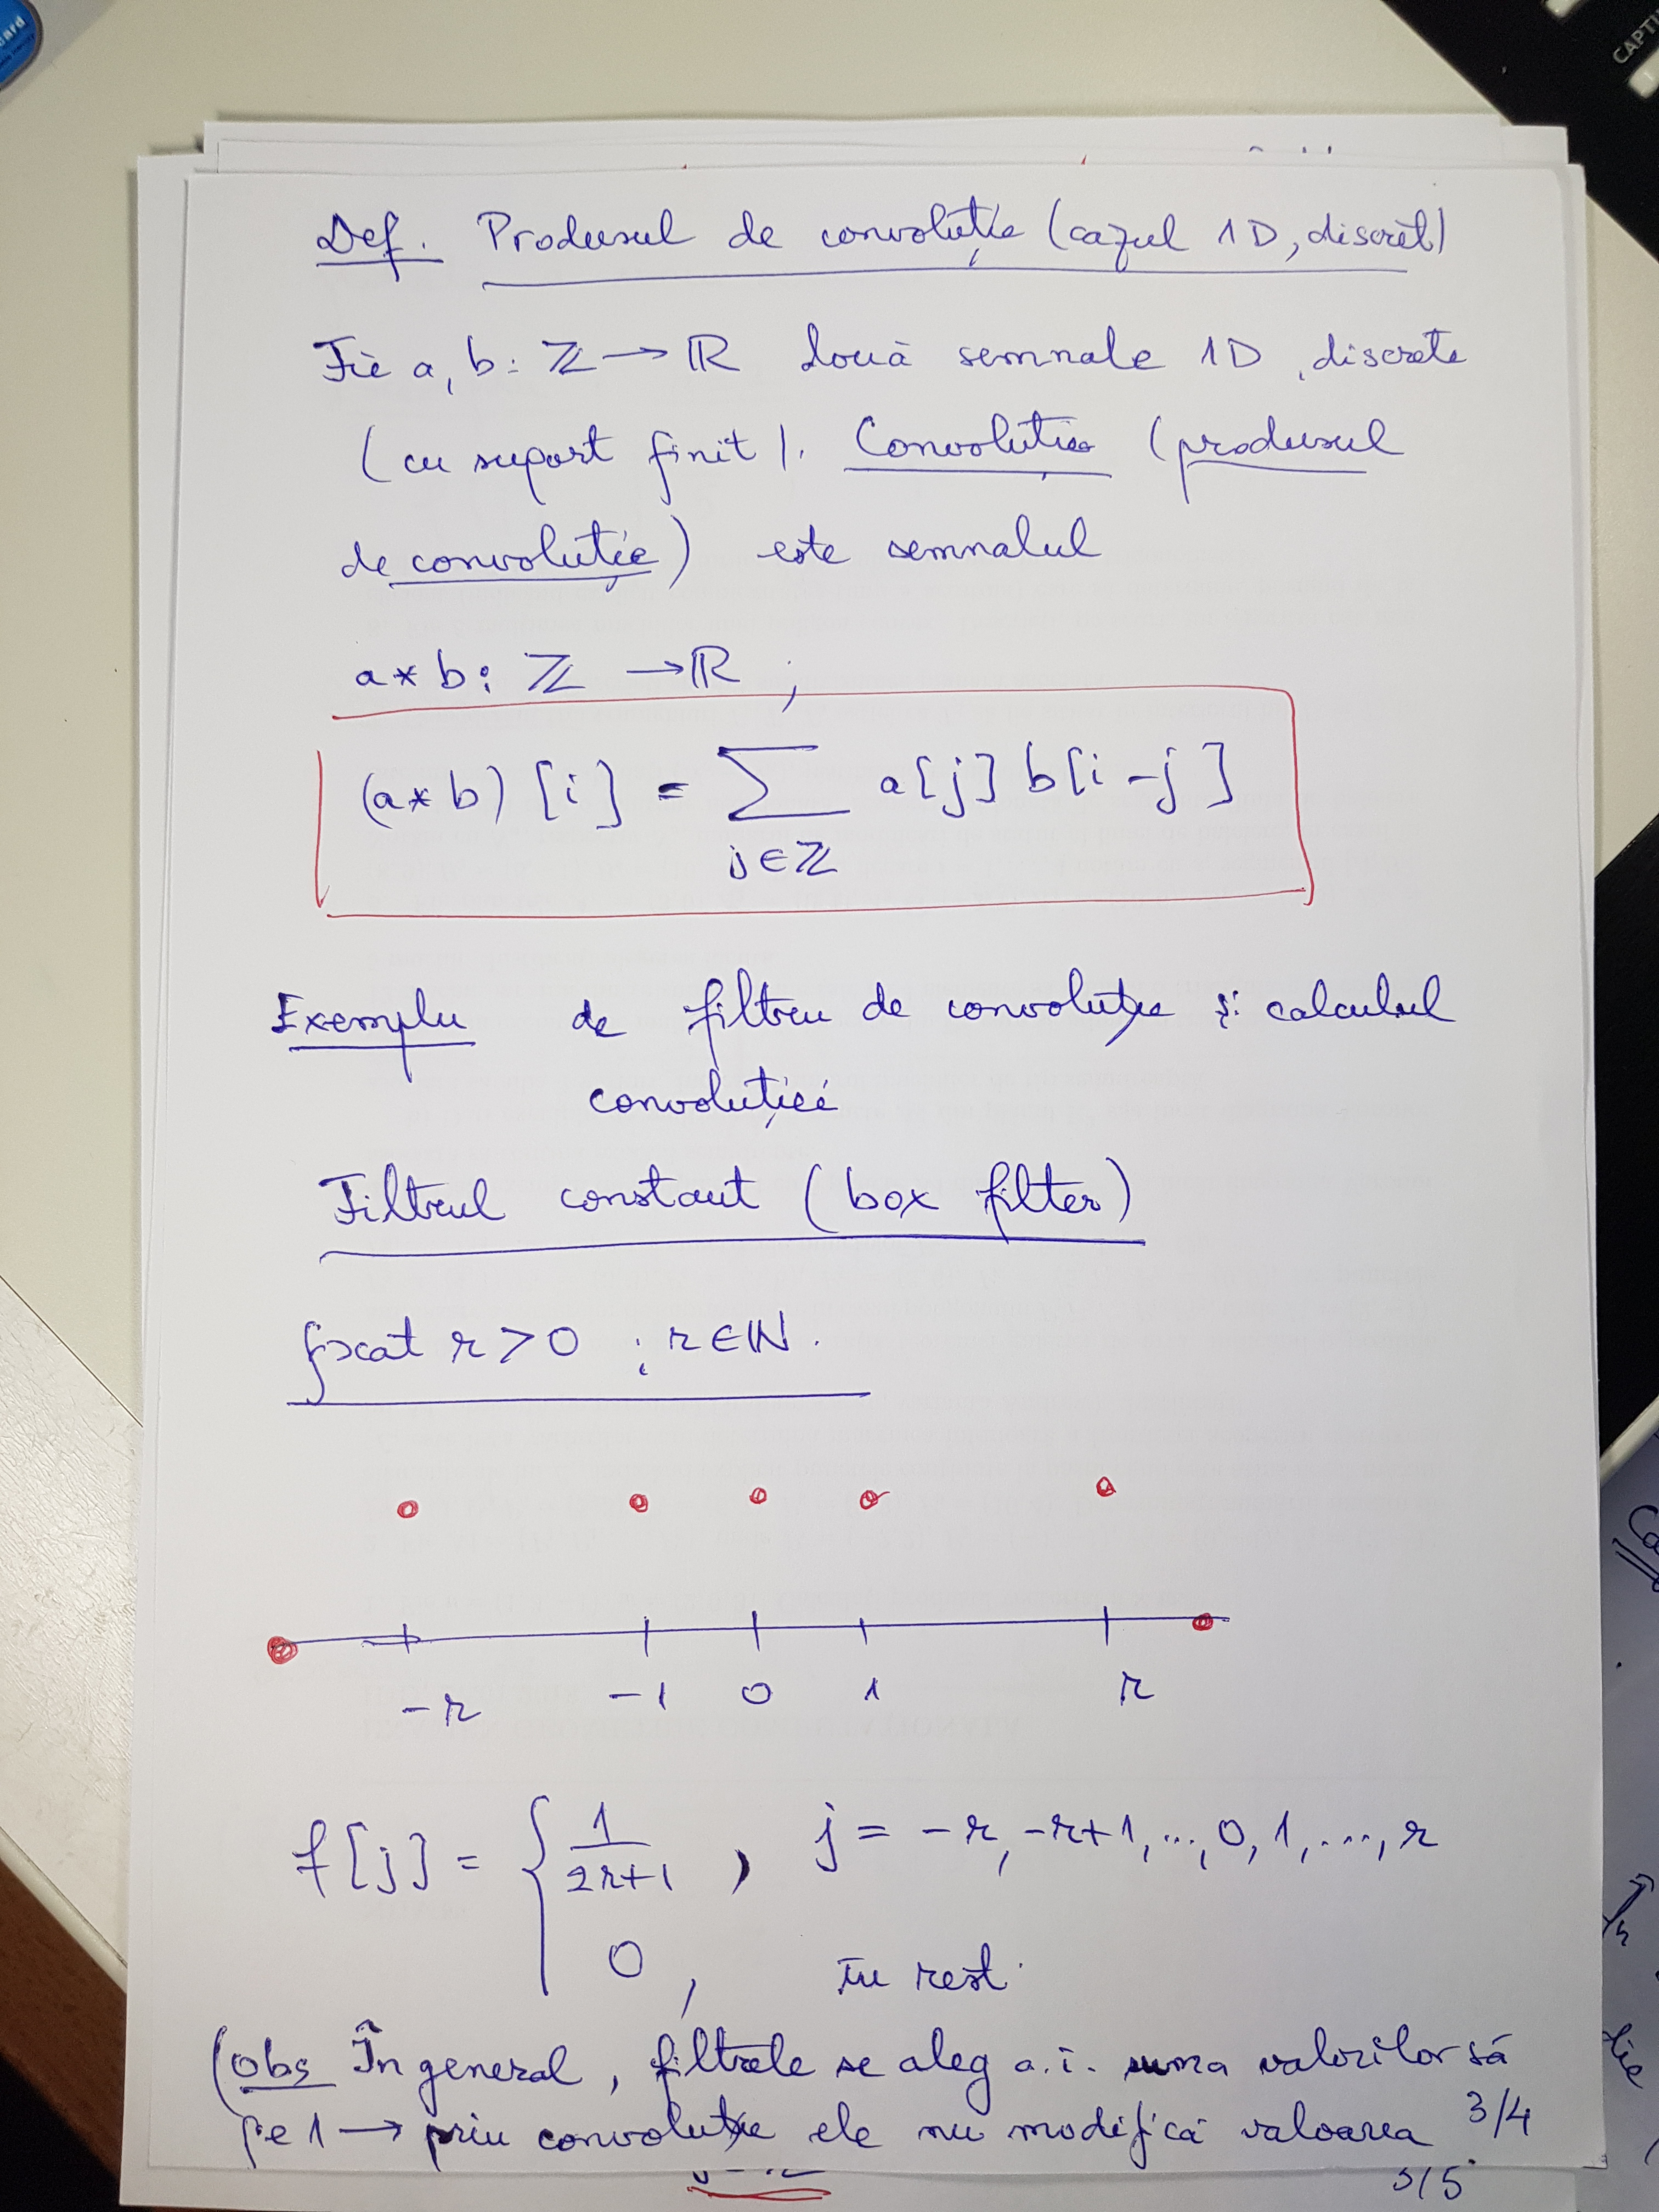 Def. Produsul de convoluție (cazul 1D, discret)
Fie a, b: ℤ → ℝ două semnale 1D, discrete
(cu suport finit). Convoluția (produsul
de convoluție) este semnalul
a * b: ℤ → ℝ ;
(a * b) [i] = ∑ a[j] b[i - j]
j ∈ ℤ
Exemplu de filtru de convoluție și calculul
convoluției
Filtrul constant (box filter)
fixat r > 0 ; r ∈ ℕ.
-r -1 0 1 r
f[j] = { 1/(2r+1) , j = -r, -r+1, ..., 0, 1, ..., r
0 , în rest.
(Obs În general, filtrele se aleg a.î. suma valorilor să
fie 1 → prin convoluție ele nu modifică valoarea 3/4
3/5
CAPTU